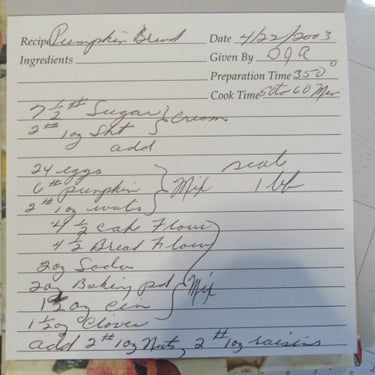 Recipe Pumpkin Bread Date 4/22/2003
Ingredients Given By DJR
Preparation Time 350°
Cook Time 50 to 60 Min
7 1/2 # Sugar } Cream
2 # 1 oz Sht
add
24 eggs scale
6 # pumpkin } Mix 1 lb
2 # 1 oz wats
4 1/2 Cake Flour
4 1/2 Bread Flour
2 oz Soda
2 oz Baking pd } Mix
1 1/2 oz Cin
1 1/2 oz Cloves
add 2 # 1 oz Nuts, 2 # 1 oz raisins